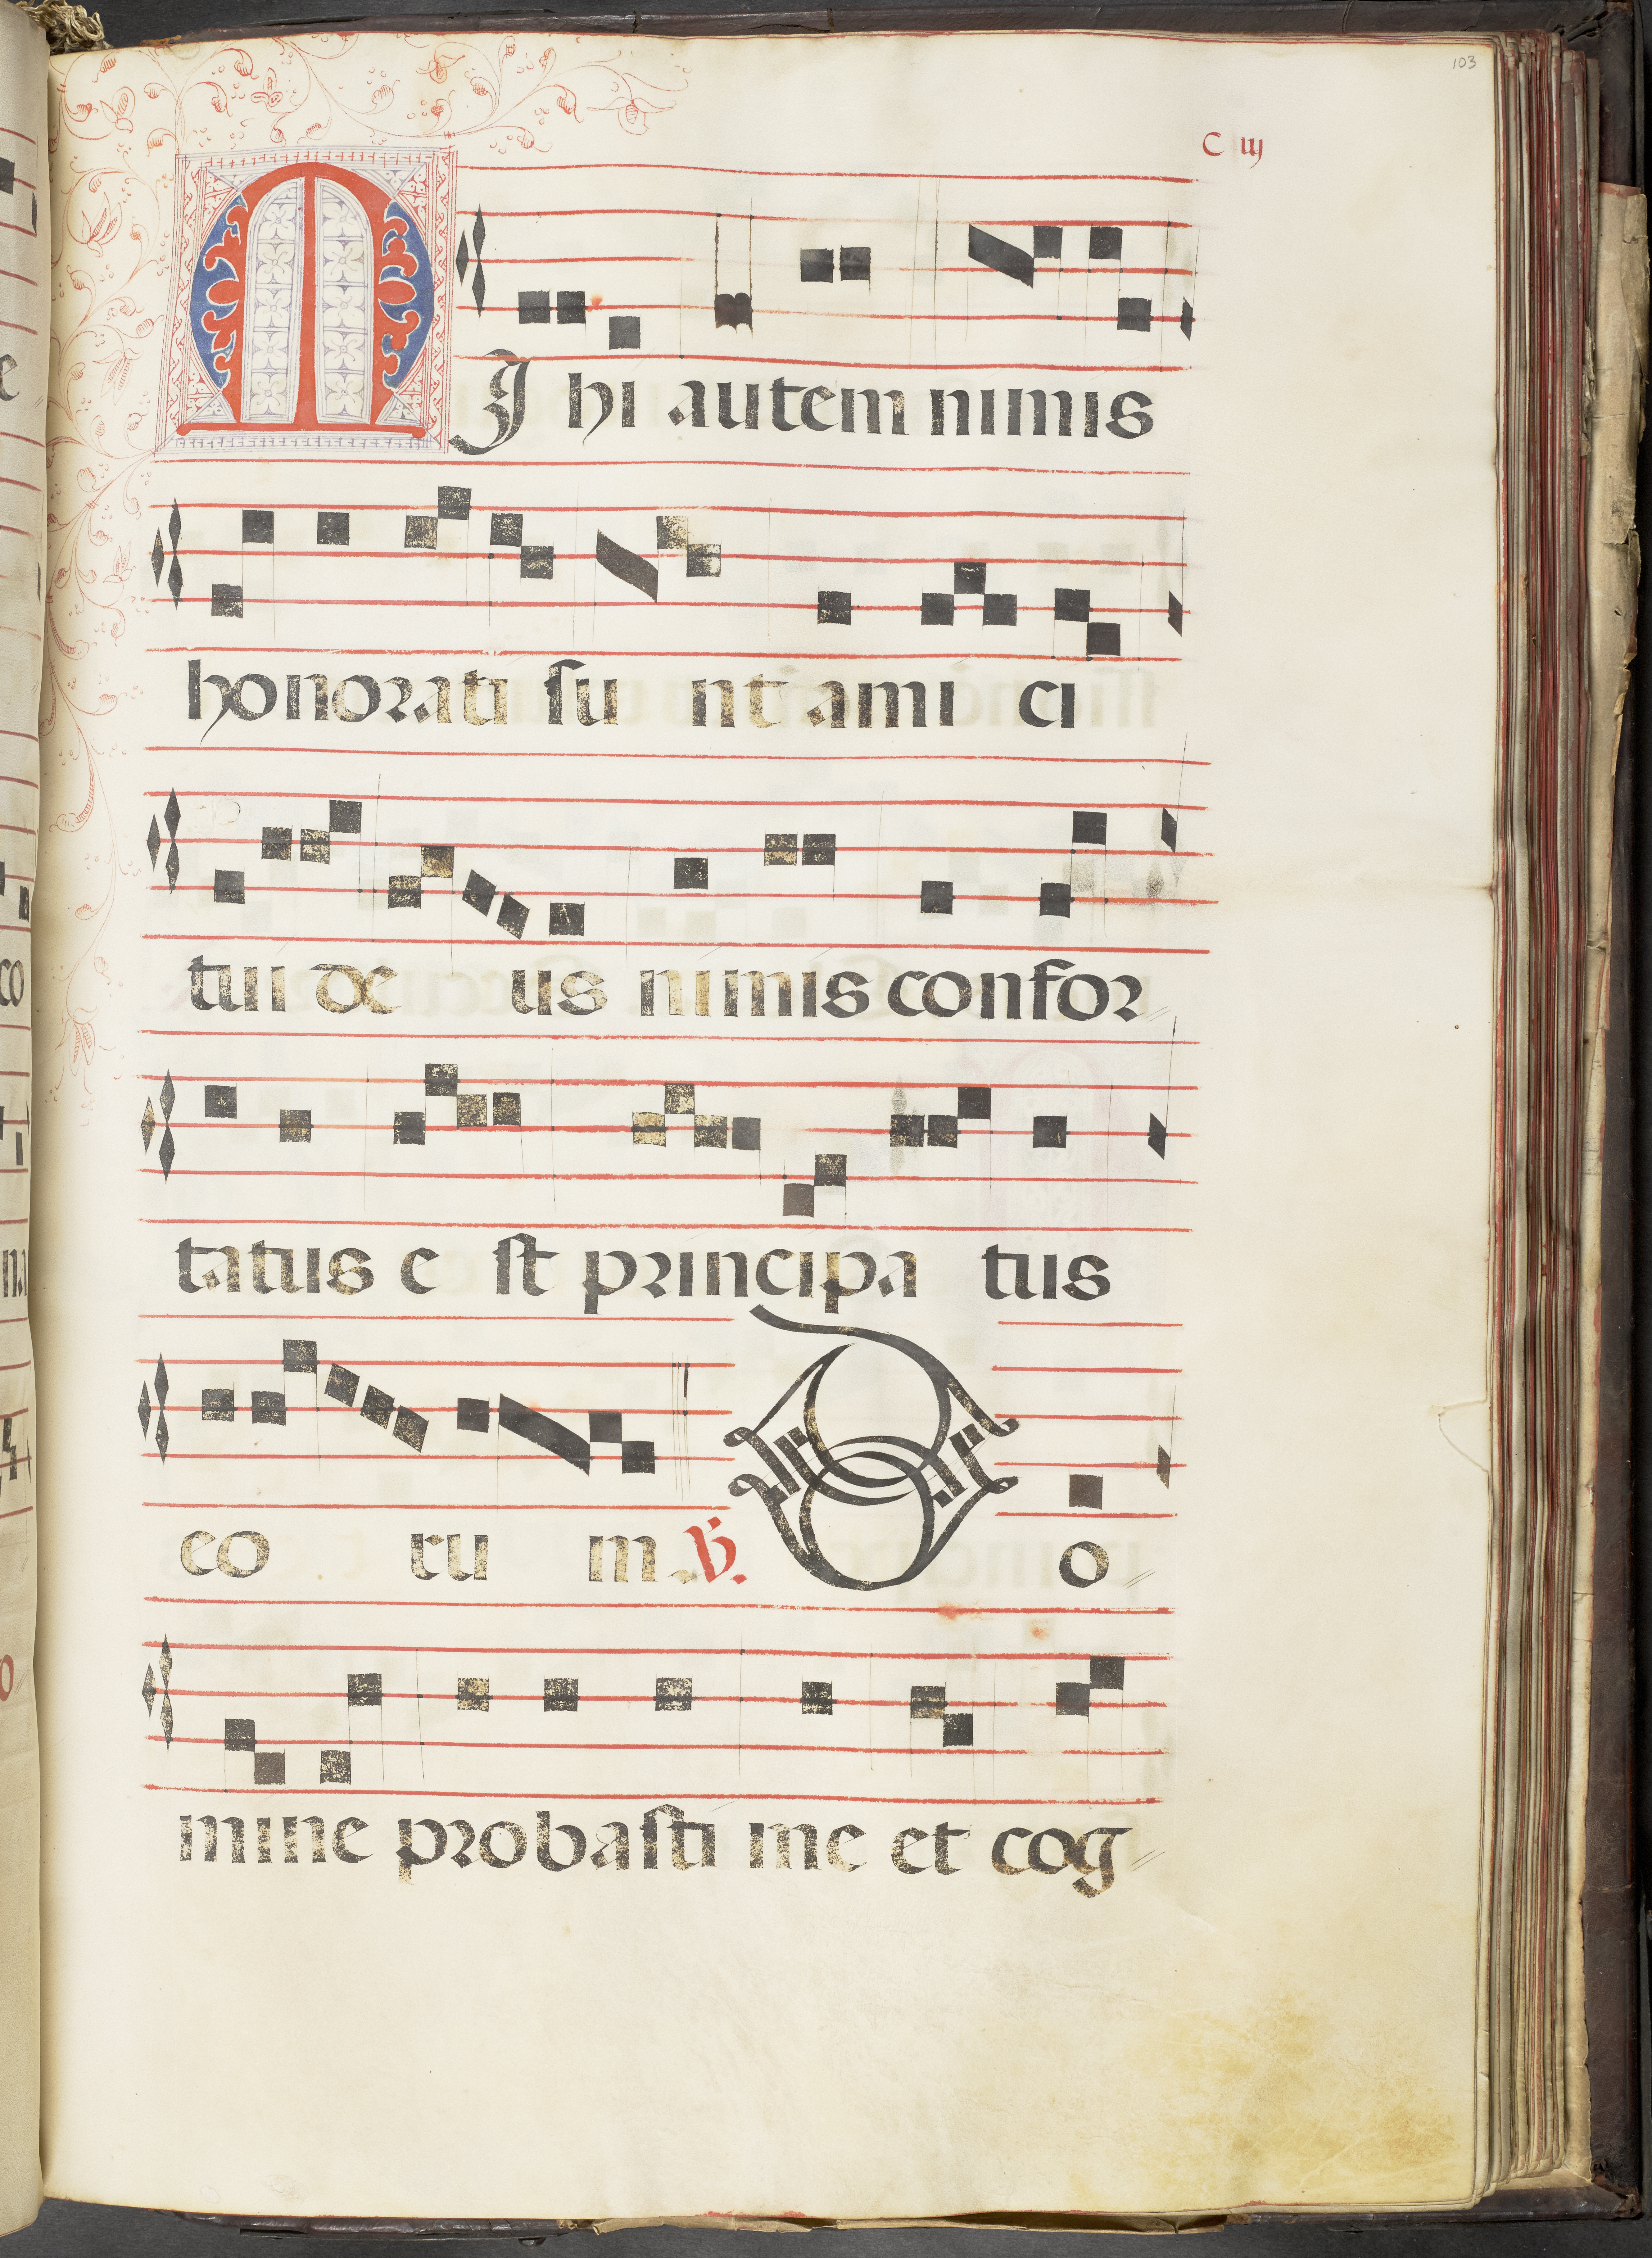 103
C iij
MJ hi autem nimis
honorati su nt ami ci
tui de us nimis confor
tatus e st principa tus
eo ru m. V. D o
mine probasti me et cog